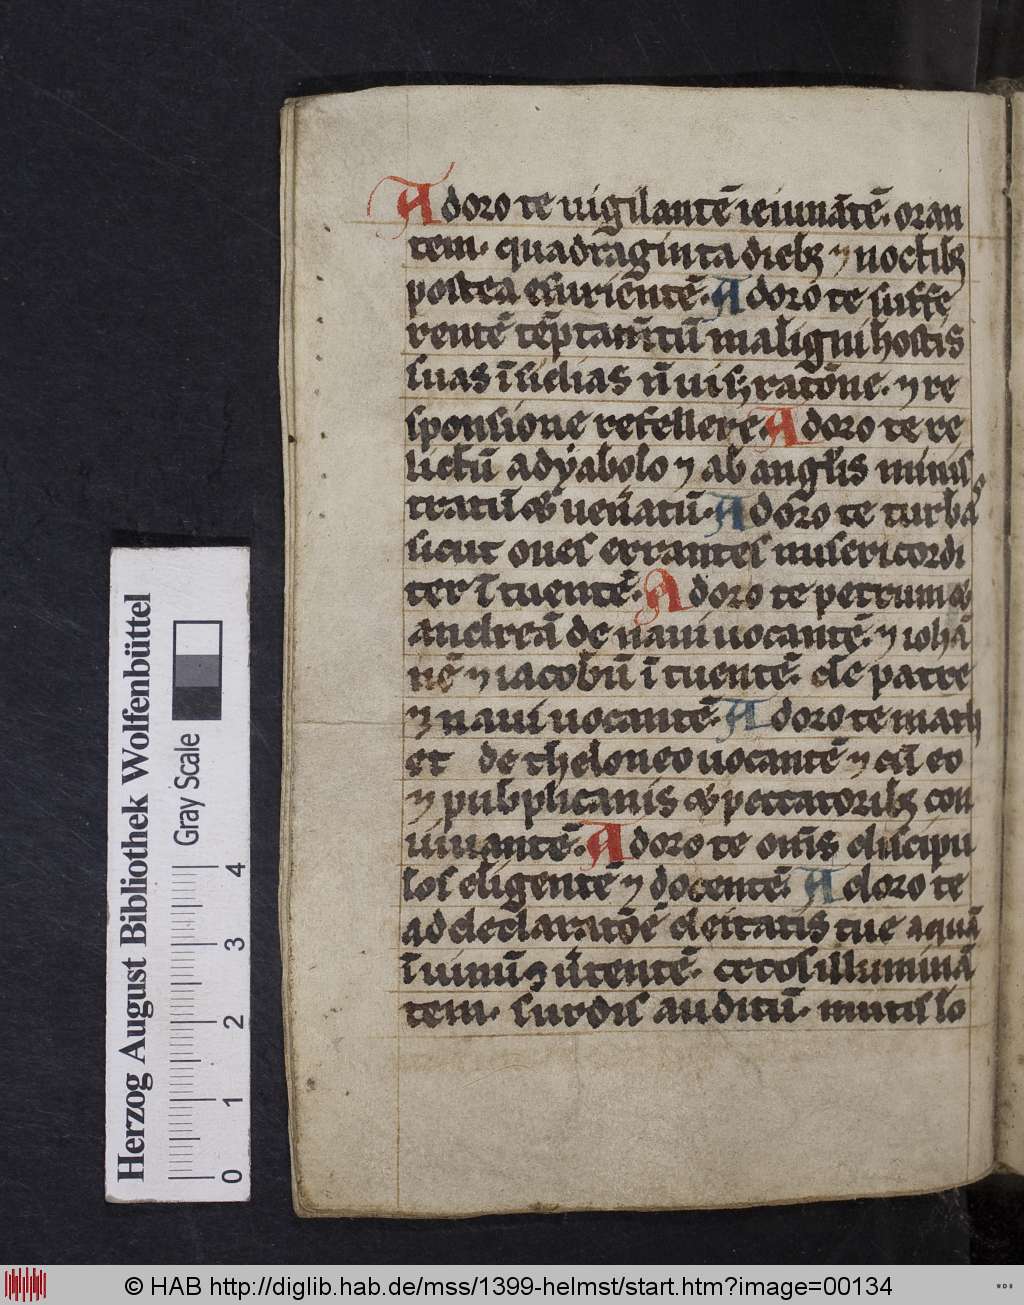 Adoro te uigilantē ieiunātē. oran
tem. quadraginta dieb⁊ ⁊ noctib⁊
postea esuriente. Adoro te suffe
rentē tēptamtū maligni hostis
suas īsidias n̄ uis ratōne. ⁊ re
sponsione refellere. Adoro te re
lictū a dyabolo ⁊ ab anglis minis
tratū & uen̄atū. Adoro te turbā
sicut oues errantes misericordi
ter ītuentē. Adoro te petrum &
andreā de naui uocantē. ⁊ iohā
nē ⁊ iacobū ītuentē. de patre
⁊ naui uocantē. Adoro te math
et de theloneo uocantē ⁊ cū eo
⁊ pubplicanis & peccatorib⁊ con
uiuantē. Adoro te om̄s discipu
los eligentē ⁊ docentē. Adoro te
ad declaratōē deitatis tue aquā
ī uinū 9u̅tentē. cecos illuminā
tem. surdis auditū. mutis lo
Herzog August Bibliothek Wolfenbüttel
Gray Scale
0 1 2 3 4
© HAB http://diglib.hab.de/mss/1399-helmst/start.htm?image=00134